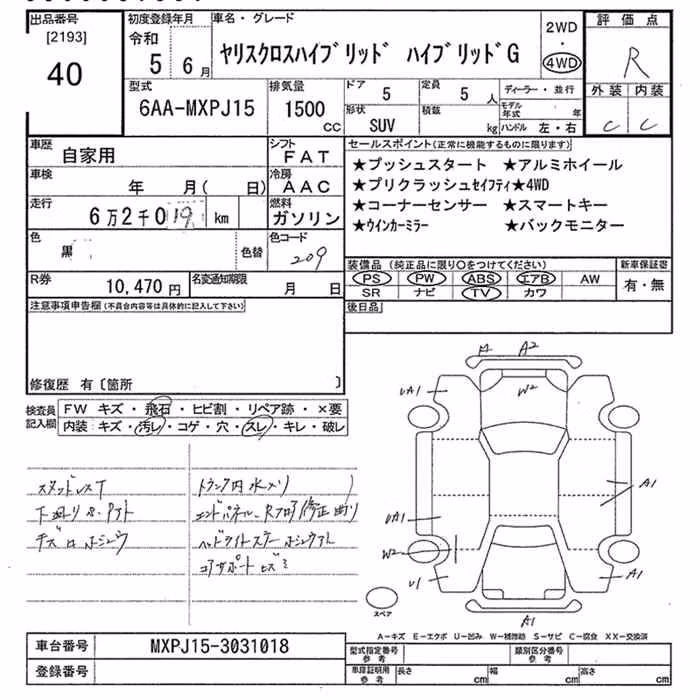 出品番号
[2193]
40
初度登録年月
令和
5 6月
車名・グレード
ヤリスクロスハイブリッド ハイブリッドG
2WD
・
4WD
評価点
R
外装 内装
C C
型式
6AA-MXPJ15
排気量
1500
cc
ドア
5
定員
5 人
形状
SUV
積載
kg
ディーラー・並行
モデル年式 年
ハンドル 左・右
車歴
自家用
シフト
FAT
車検
年 月( 日)
冷房
AAC
走行
6万2千019 km
燃料
ガソリン
色
黒
色替
色コード
209
R券
10,470円
名変通知期限
月 日
セールスポイント(正常に機能するものに限ります)
★プッシュスタート ★アルミホイール
★プリクラッシュセイフティ★4WD
★コーナーセンサー ★スマートキー
★ウインカーミラー ★バックモニター
装備品 (純正品に限り○をつけてください)
PS PW ABS エアB AW
SR ナビ TV カワ
新車保証書
有・無
後日品
注意事項申告欄(不具合内容等は具体的に記入して下さい)
修復歴 有〔箇所 〕
検査員記入欄
FW キズ・飛石・ヒビ割・リペア跡・×要
内装:キズ・汚レ・コゲ・穴・スレ・キレ・破レ
トランク内 水メリ
エンドパネル、Rフロア修正
コアサポート
A A2
UA1 W2
A1
UA1
W2
U1 A1
A1
スペア
A-キズ E-エクボ U-凹み W-補修跡 S-サビ C-腐食 XX-交換済
車台番号
MXPJ15-3031018
登録番号
型式指定番号 参考
類別区分番号 参考
車庫証明用 参考
長さ cm
幅 cm
高さ cm